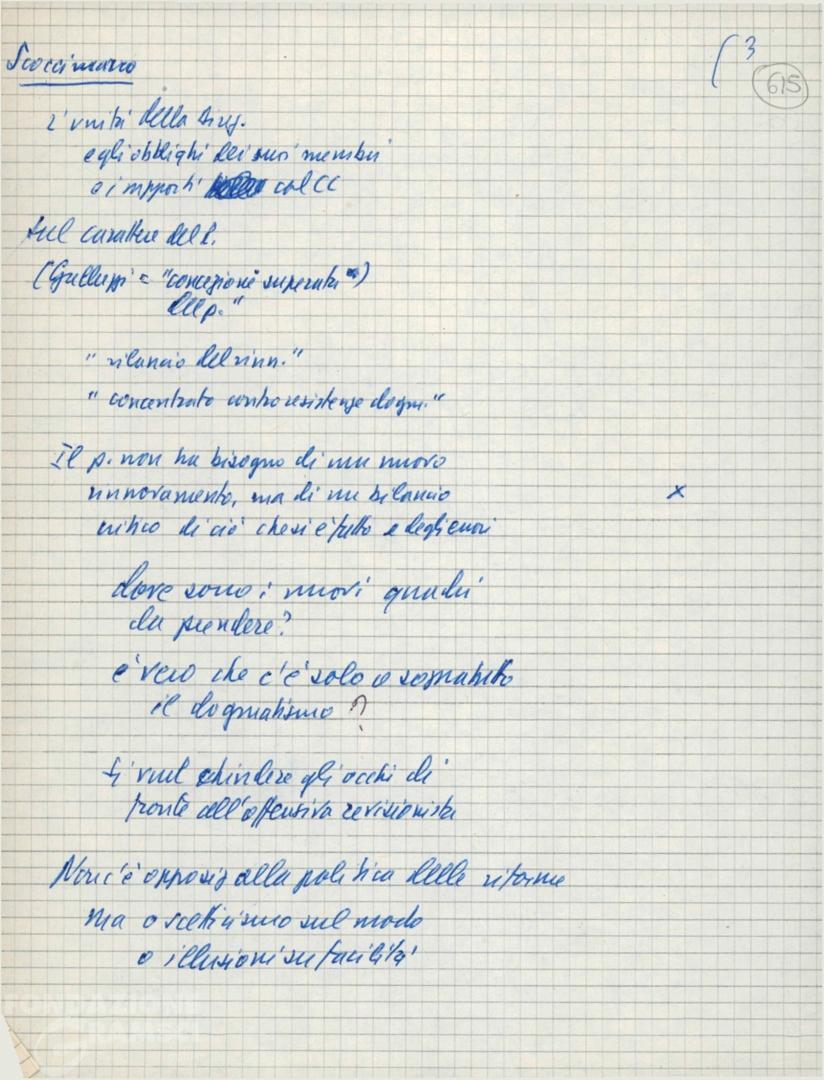 3
615
Scoccimarro
L'unità della Direz.
e gli obblighi dei suoi membri
e i rapporti col CC
Sul carattere del P.
(Galluppi = "concezione superata")
del p."
"rilancio del rinn."
"concentrato contro resistenze dogm."
Il p. non ha bisogno di un nuovo
rinnovamento, ma di un bilancio x
critico di ciò che si è fatto e degli errori
dove sono i nuovi quadri
da prendere?
è vero che c'è solo o soprattutto
il dogmatismo?
Si vuol chiudere gli occhi di
fronte all'offensiva revisionista
Non c'è opposiz alla politica delle riforme
ma o scetticismo sul modo
o illusioni su facilità
FONDAZIONE
GRAMSCI